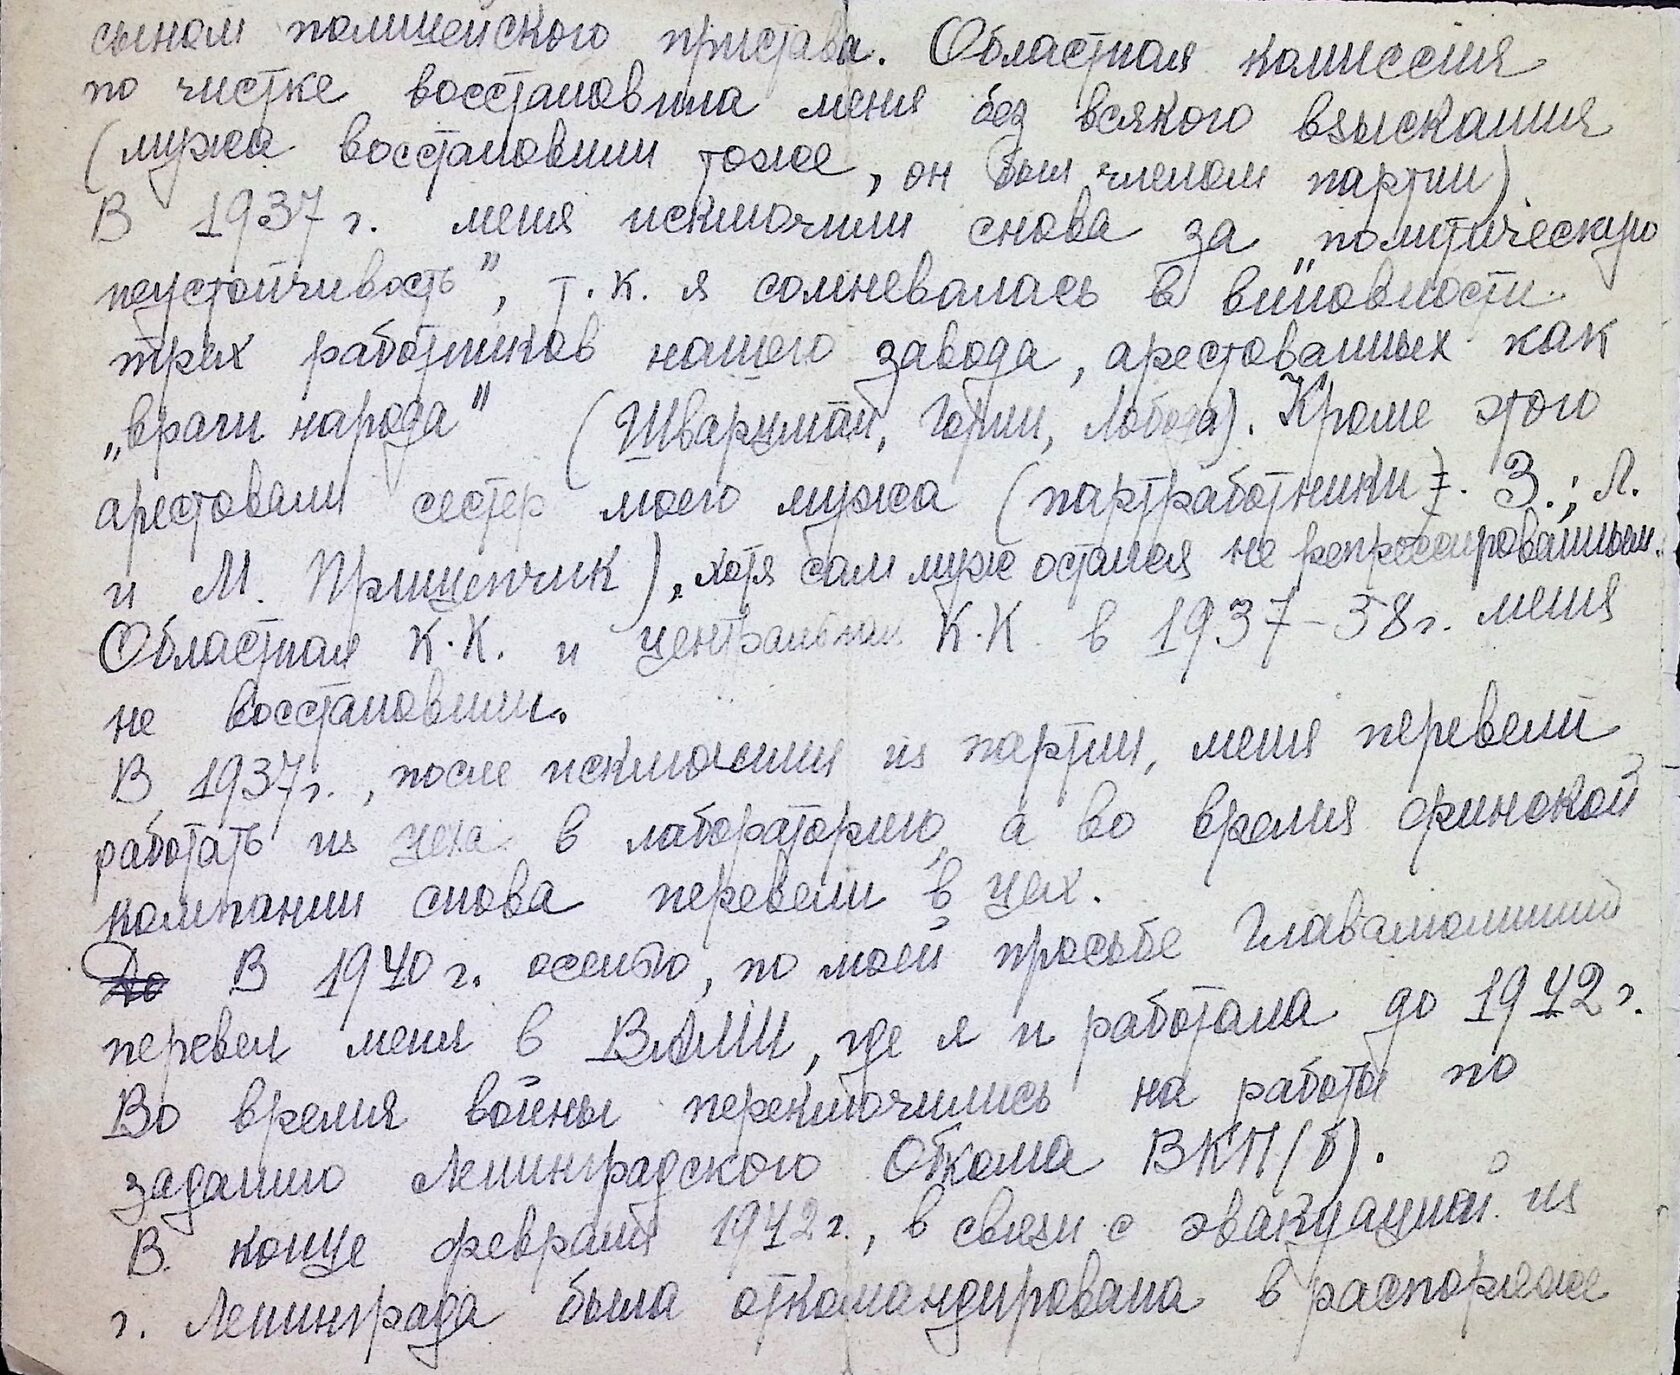 сыном полицейского пристава. Областная комиссия
по чистке восстановила меня без всякого взыскания
(мужа восстановили тоже, он был членом партии)
В 1937 г. меня исключили снова за „политическую
неустойчивость", т.к. я сомневалась в виновности
трех работников нашего завода, арестованных как
„враги народа" (Шварцман, Горин, Лобода). Кроме этого
арестовали сестер моего мужа (партработники З.; Л.
и М. Прищепчик), хотя сам муж остался не репрессированным.
Областная К.К. и центральная К.К в 1937-38г. меня
не восстановили.
В 1937г., после исключения из партии, меня перевели
работать из цеха в лабораторию, а во время финской
компании снова перевели в цех.
До В 1940 г. осенью, по моей просьбе Главалюминий
перевел меня в ВАМИ, где я и работала до 1942 г.
Во время войны переключились на работы по
заданию Ленинградского Обкома ВКП(б).
В конце февраля 1942г., в связи с эвакуацией из
г. Ленинграда была откомандирована в распоряже